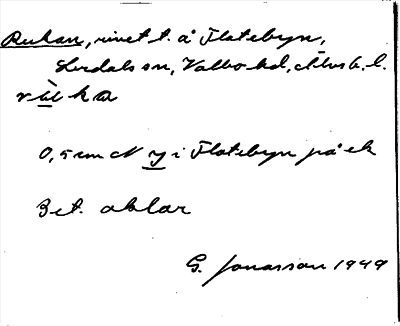 Ruhan, rivet t. å Flatebyn,
Lerdals sn, Valbo hd, Älvsb. l.
0,5 cm N y i Flatebyn på ek
Bet. oklar
G. Jonasson 1949